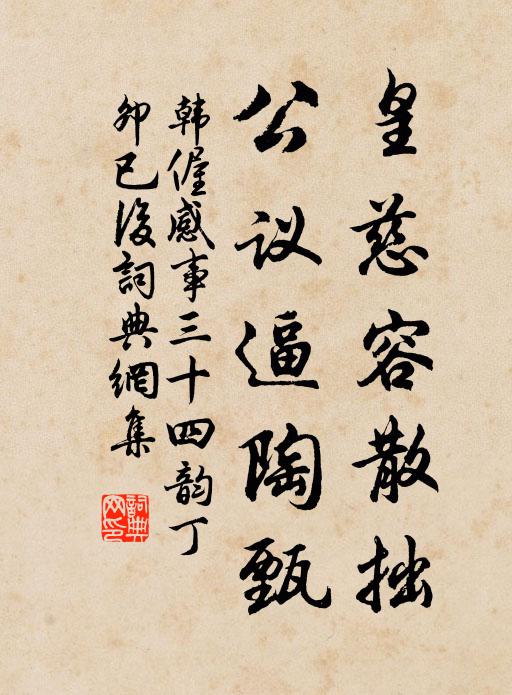 皇慈容散拙
公议逼陶甄
韩偓感事三十四韵丁
卯已后詞典網集
詞典網印